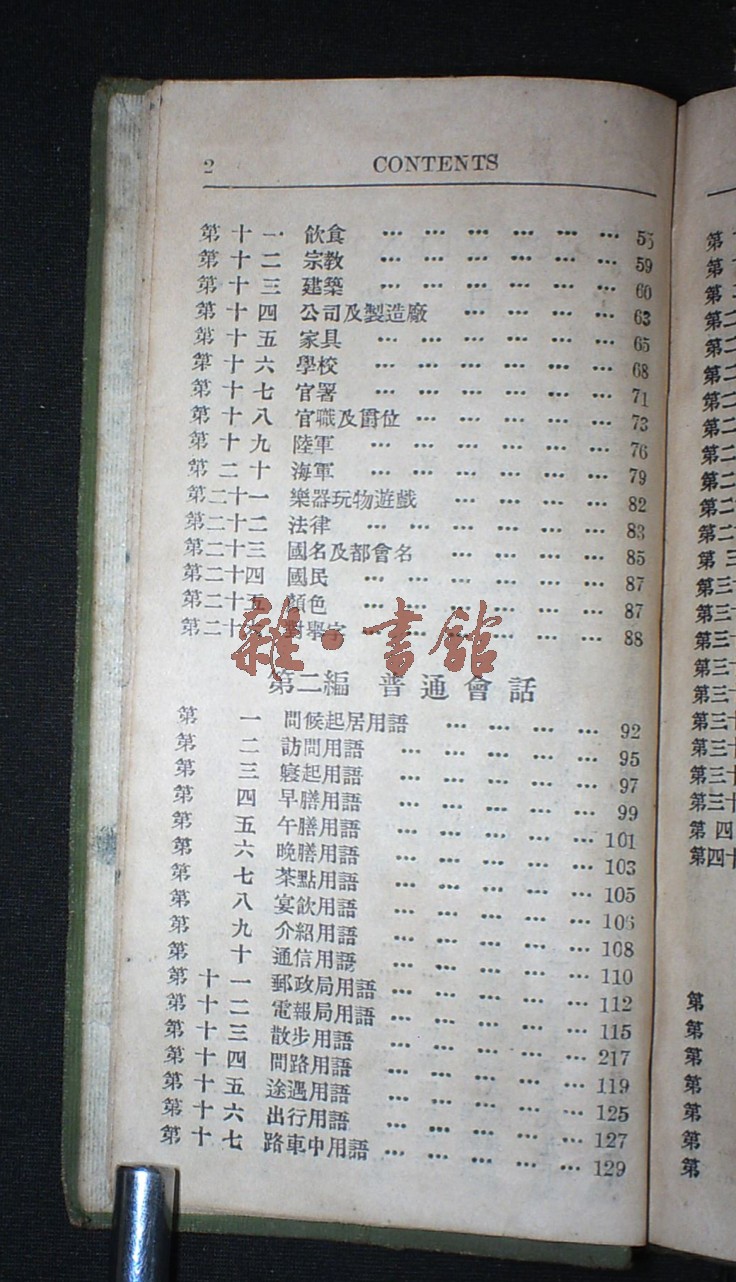 2 CONTENTS
第十一 飲食 … … … … … … 55
第十二 宗教 … … … … … … 59
第十三 建築 … … … … … … 60
第十四 公司及製造廠 … … … … 63
第十五 家具 … … … … … … 65
第十六 學校 … … … … … … 68
第十七 官署 … … … … … … 71
第十八 官職及爵位 … … … … … 73
第十九 陸軍 … … … … … … 76
第二十 海軍 … … … … … … 79
第二十一 樂器玩物遊戲 … … … … 82
第二十二 法律 … … … … … … 83
第二十三 國名及都會名 … … … … 85
第二十四 國民 … … … … … … 87
第二十五 顏色 … … … … … … 87
第二十六 對舉字 … … … … … … 88
雜·書館
第二編 普通會話
第一 問候起居用語 … … … … 92
第二 訪問用語 … … … … … 95
第三 寢起用語 … … … … … 97
第四 早膳用語 … … … … … 99
第五 午膳用語 … … … … … 101
第六 晚膳用語 … … … … … 103
第七 茶點用語 … … … … … 105
第八 宴飲用語 … … … … … 106
第九 介紹用語 … … … … … 108
第十 通信用語 … … … … … 110
第十一 郵政局用語 … … … … … 112
第十二 電報局用語 … … … … … 115
第十三 散步用語 … … … … … 217
第十四 問路用語 … … … … … 119
第十五 途遇用語 … … … … … 125
第十六 出行用語 … … … … … 127
第十七 路車中用語 … … … … … 129